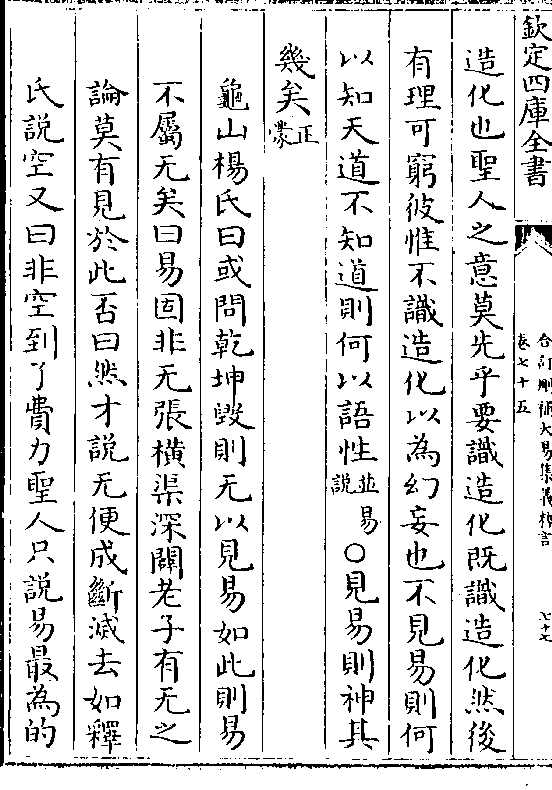 欽定四庫全書
合訂刪補大易集義粹言
卷七十五
七十七
造化也聖人之意莫先乎要識造化既識造化然後
有理可窮彼惟不識造化以為幻妄也不見易則何
以知天道不知道則何以語性並易說〇見易則神其
幾矣正蒙
龜山楊氏曰或問乾坤毀則无以見易如此則易
不屬无矣曰易固非无張橫渠深闢老子有无之
論莫有見於此否曰然才說无便成斷滅去如釋
氏說空又曰非空到了費力聖人只說易最為的